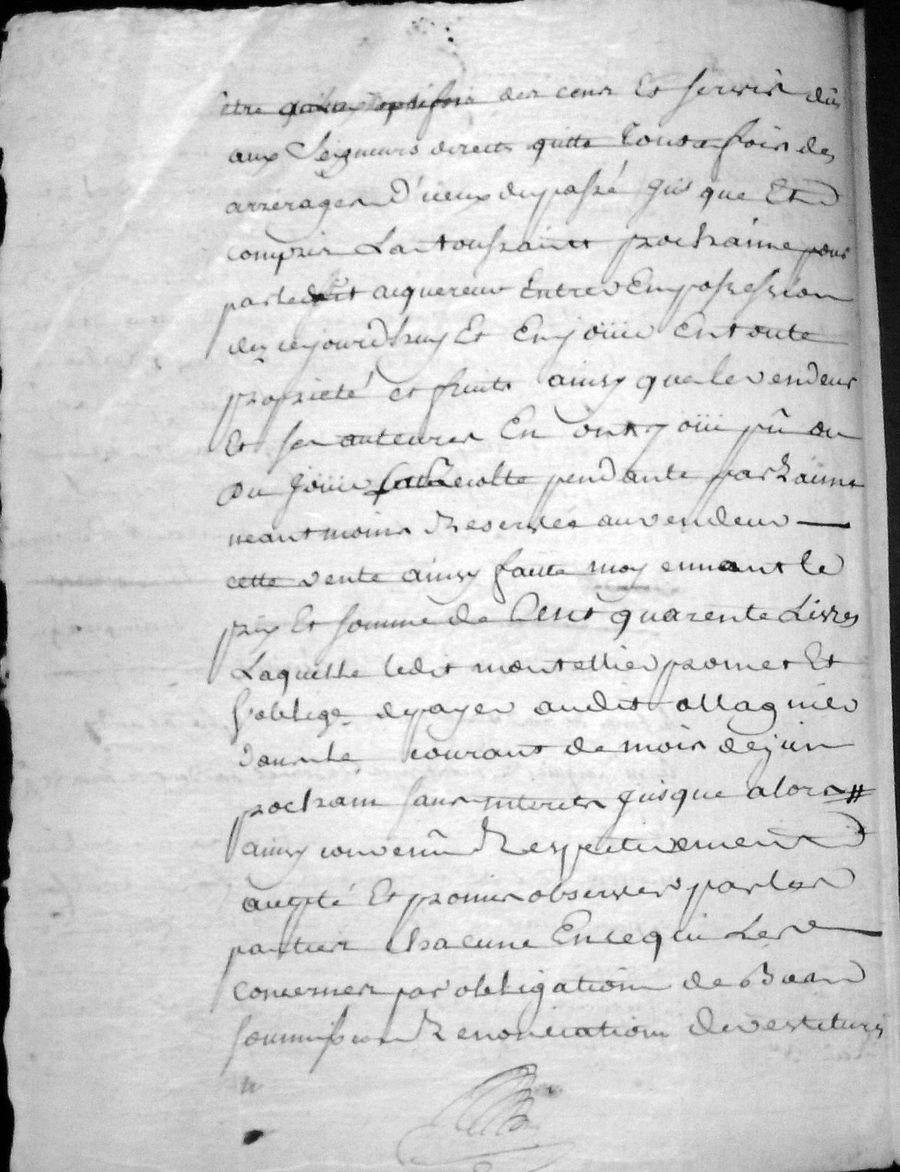 être des cens et servis dus
aux Seigneurs directs quitte toute fois des
arrérages d'iceux du passé jus que et
compris La toussaint prochainne pour
par ledit aiquereur entrer en possession
dez cejourd'huy et En joüir en toute
proprieté et fruits ainsy que le vendeur
Et ses auteurs En ont joüi pû ou
du joüir recolte pendante par racine
neantmoins Reservée au vendeur
cette vente ainsy faitte moyennant le
prix Et somme de Cent quarente Livres
Laquelle ledit montellier promet Et
s'oblige de payer audit allagnier
dans le courant de mois de juin
prochain sans interets jusque alors #
ainsy convenu Respectivement
acepté Et promis observer par les
parties chacune En ce qui les
concerner par obligation de Biens
soummission Renonciation devestiture